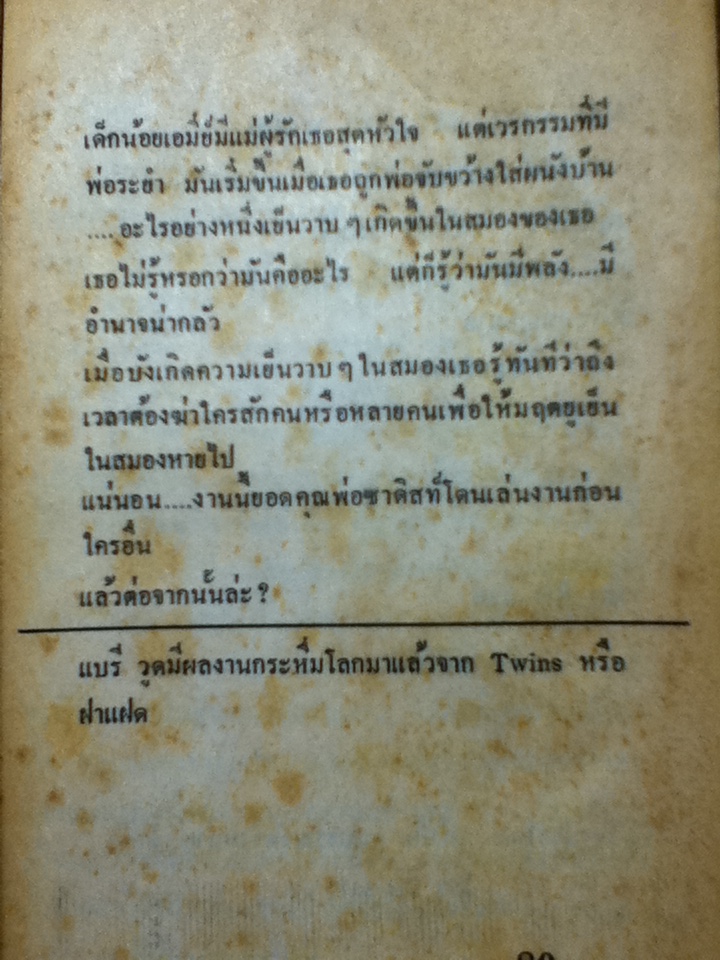 เด็กน้อยเอมี่ย์มีแม่ผู้รักเธอสุดหัวใจ แต่เวรกรรมที่มี
พ่อระยำ มันเริ่มขึ้นเมื่อเธอถูกพ่อจับขว้างใส่ผนังบ้าน
....อะไรอย่างหนึ่งเย็นวาบ ๆ เกิดขึ้นในสมองของเธอ
เธอไม่รู้หรอกว่ามันคืออะไร แต่ก็รู้ว่ามันมีพลัง....มี
อำนาจน่ากลัว
เมื่อบังเกิดความเย็นวาบ ๆ ในสมองเธอรู้ทันทีว่าถึง
เวลาต้องฆ่าใครสักคนหรือหลายคนเพื่อให้มฤตยูเย็น
ในสมองหายไป
แน่นอน....งานนี้ยอดคุณพ่อซาดิสท์โดนเล่นงานก่อน
ใครอื่น
แล้วต่อจากนั้นล่ะ?
แบรี่ วูดมีผลงานกระหึ่มโลกมาแล้วจาก Twins หรือ
ฝาแฝด